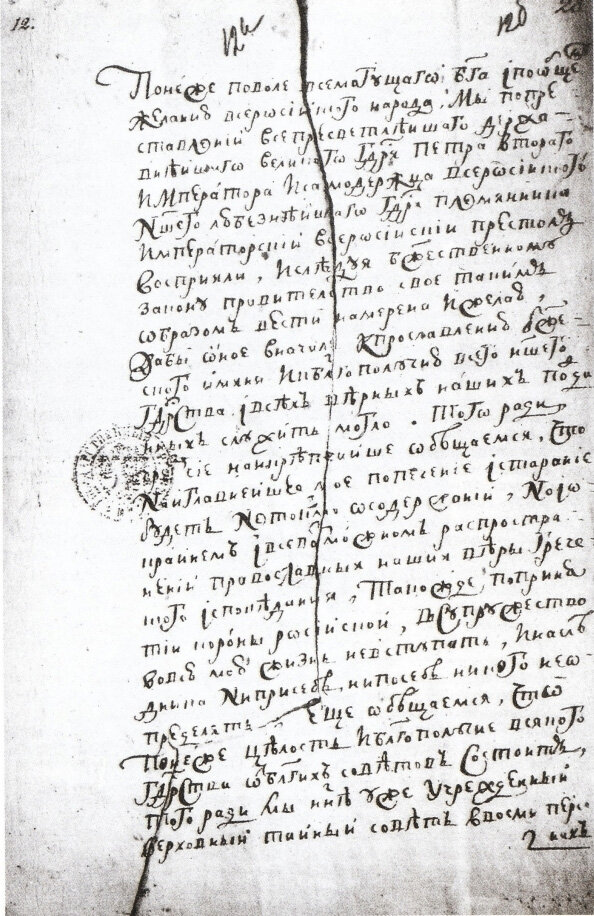 12.
12а 12б
Понеже поволе всемогущаго бга ïпообще
желанию всеросиiского народа, Мы попре
ставленiй Всепресветлѣйшаго держа
внѣйшаго великаго гдря Петра второго
Императора Исамодержца всеросиiского
Ншего любезнѣйшаго гдря племянника
Императорскiй всеросиiскiй престолъ
восприяли, Ислѣдуя бжественному
закону правительство свое такимъ
образомъ вести намерена Ижелаю,
дабы оное вначале кпрославлению бже
ского имяни Иблгополучию всего ншего
гдрства ïвсѣхъ вѣрныхъ нашихъ подда
нныхъ служить могло. Того ради
чрезъ сие наикрѣпчайше обѣщаемся, что
Наиглавнейшее мое попечение ïстарание
будетъ Нетокмо осодержанiй, Ноïо
крайнемъ ïвсевозможномъ распростра
ненiй православныя нашея вѣры грече
ского ïсповѣдания, Такожде поприня
тiй короны росиiской, Всупружество
вовсю мою жизнь невступать, Инаслѣ
дника Nиприсебѣ, нипосебѣ никого нео
пределять. Еще обѣщаемся, что
Понеже цѣлость Иблгополучие всякого
гдрства облгихъ совѣтовъ состоитъ,
того ради мы ннѣ уже учрежденный
верховный тайный совѣтъ ввосми персо
нахъ